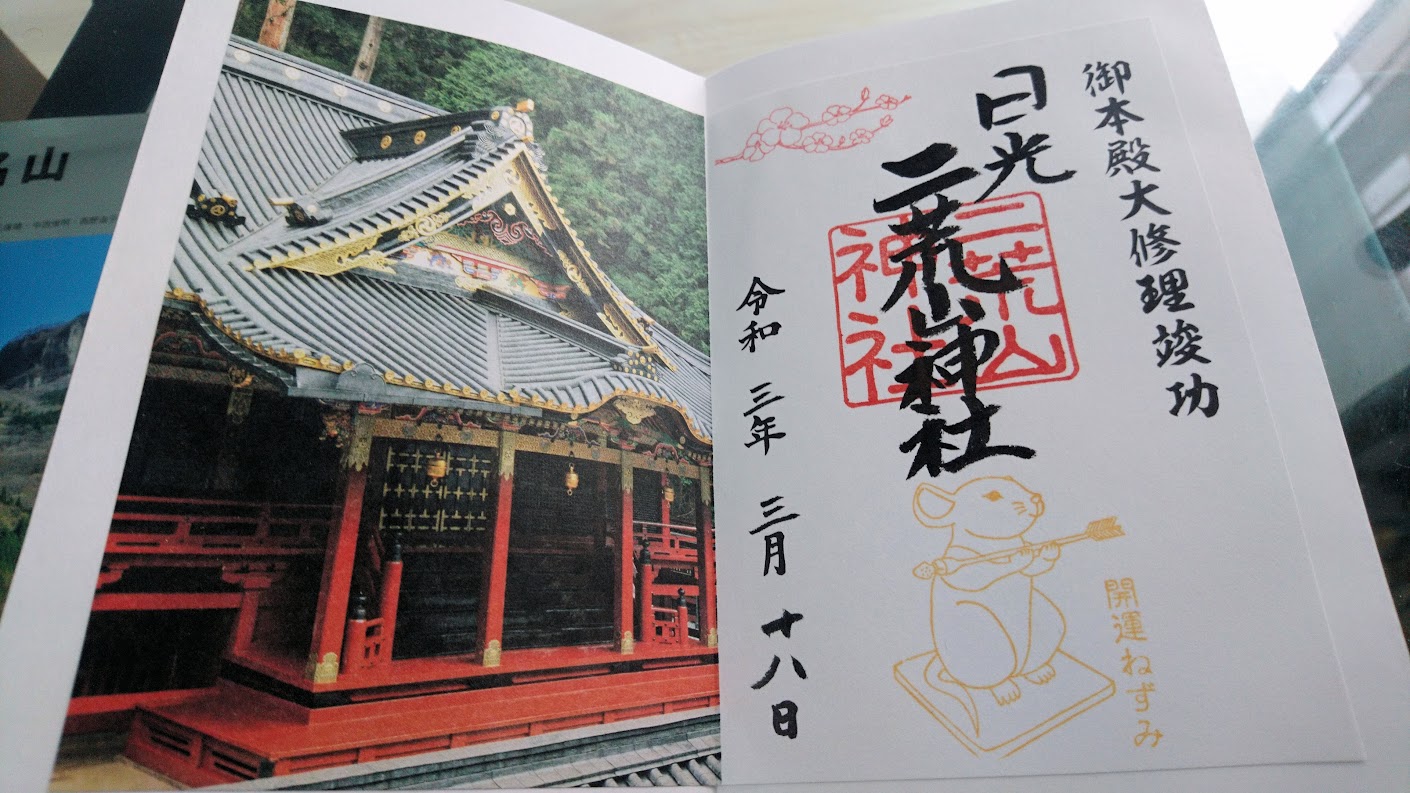 御本殿大修理竣功
日光
二荒山神社
二荒山
神社
令和 三年 三月 十八日
開運ねずみ
名山